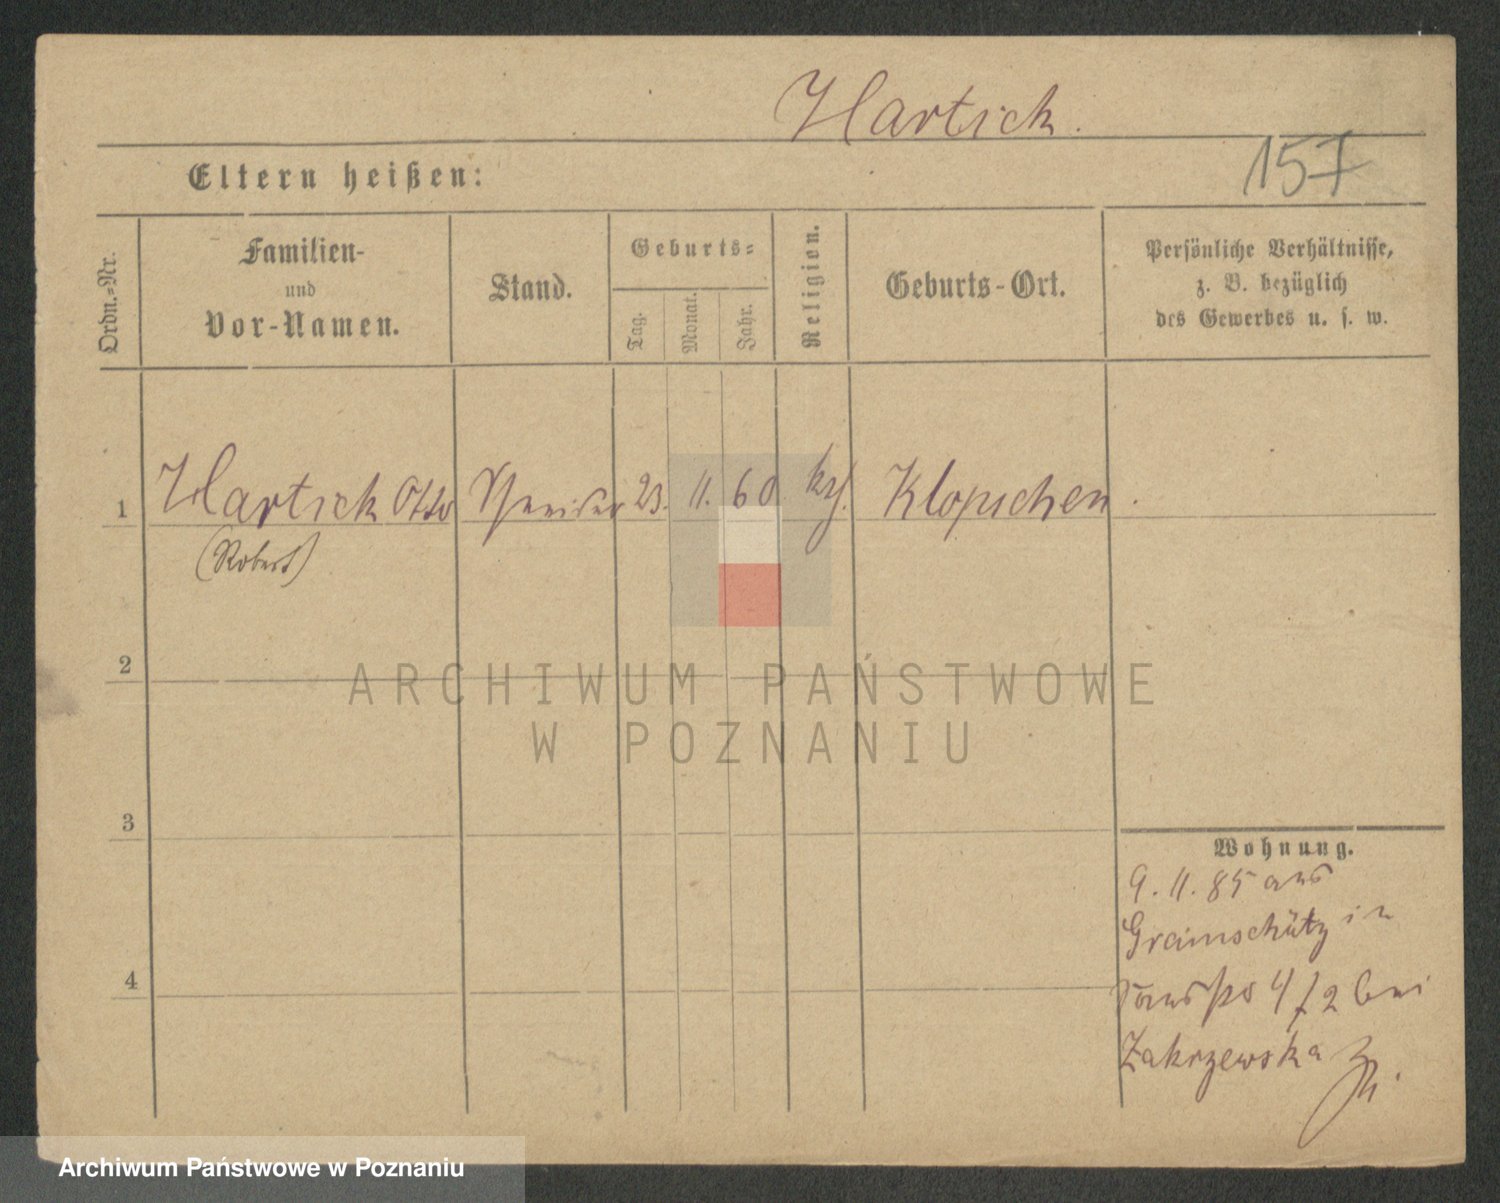 Hartsick.
157
Eltern heißen:
Ordn.-Nr.
Familien-
und
Vor-Namen.
Stand.
Geburts-
Tag.
Monat.
Jahr.
Religion.
Geburts-Ort.
Persönliche Verhältnisse,
z. B. bezüglich
des Gewerbes u. s. w.
1 Hartsick Otto Schneider 23. 11. 60 Klopschen.
(Robert)
2
3
4
Wohnung.
9. 11. 85 aus
Gramschütz in
4/2 bei
Zakrzewska
ARCHIWUM PAŃSTWOWE
W POZNANIU
Archiwum Państwowe w Poznaniu